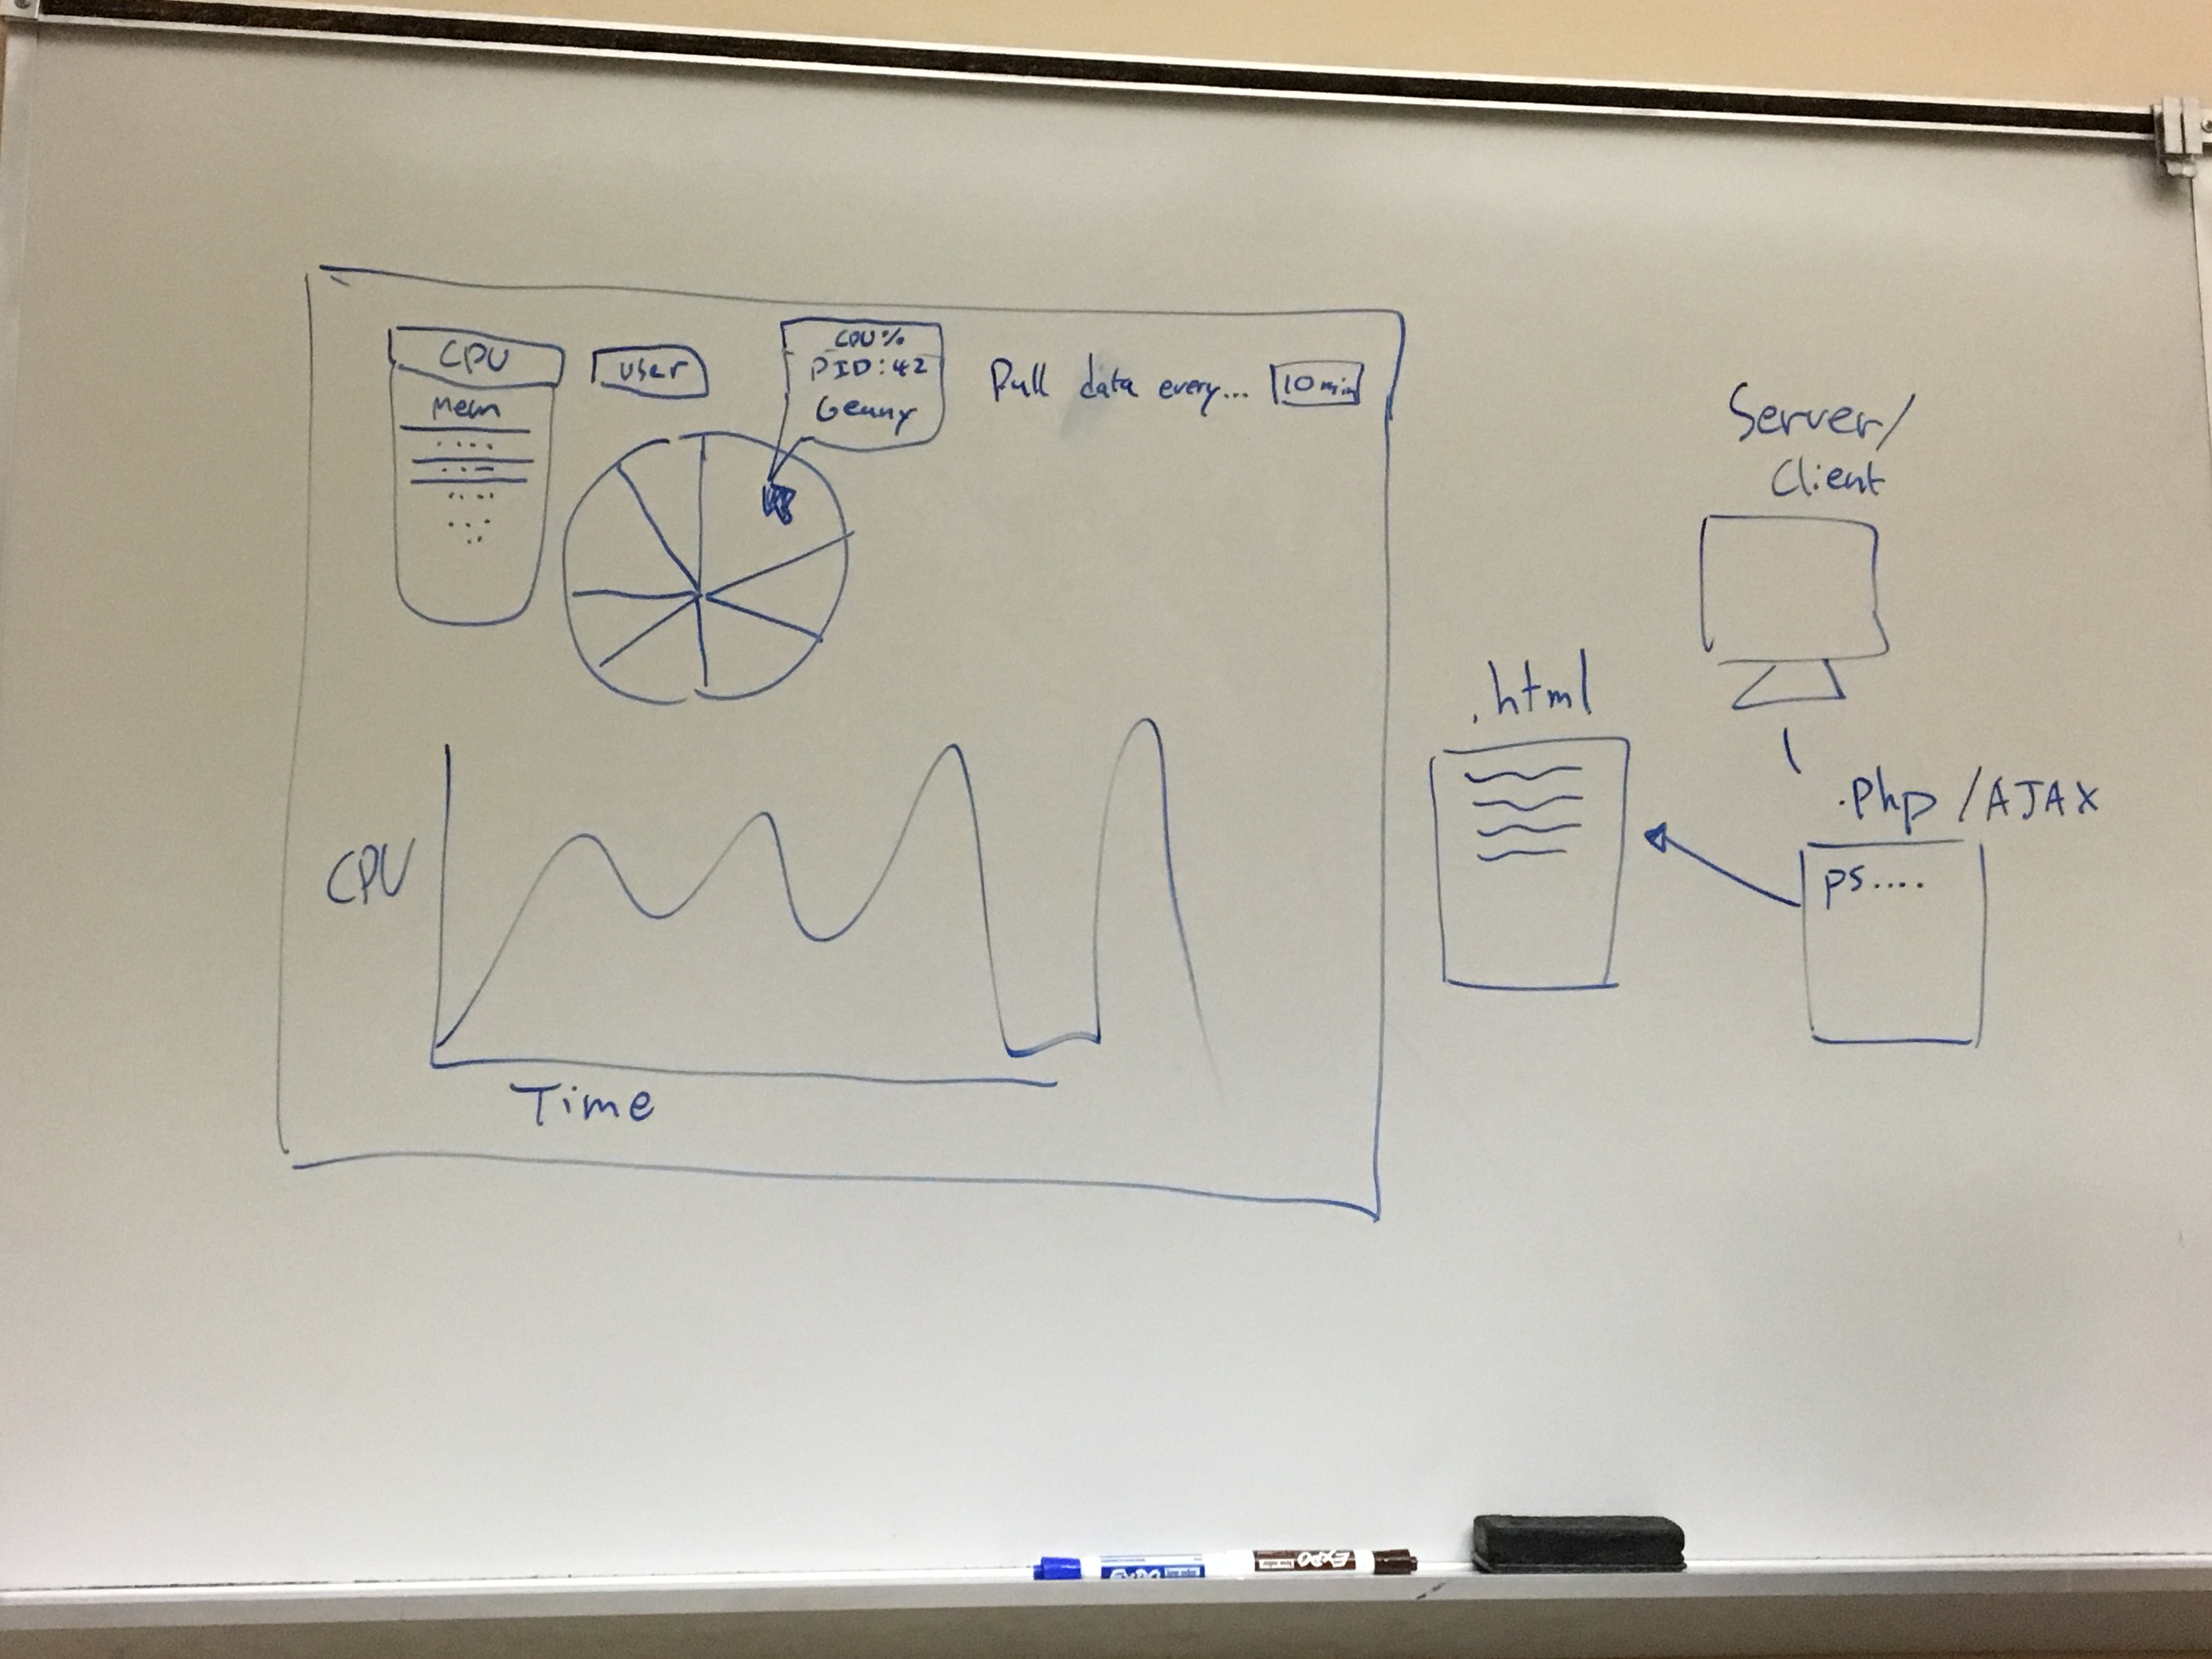 CPU
Mem
user
CPU%
PID:42
Pull data every... 10 min
CPU
Time
Server/
Client
.html
.php /AJAX
ps....
EXPO
EXPO